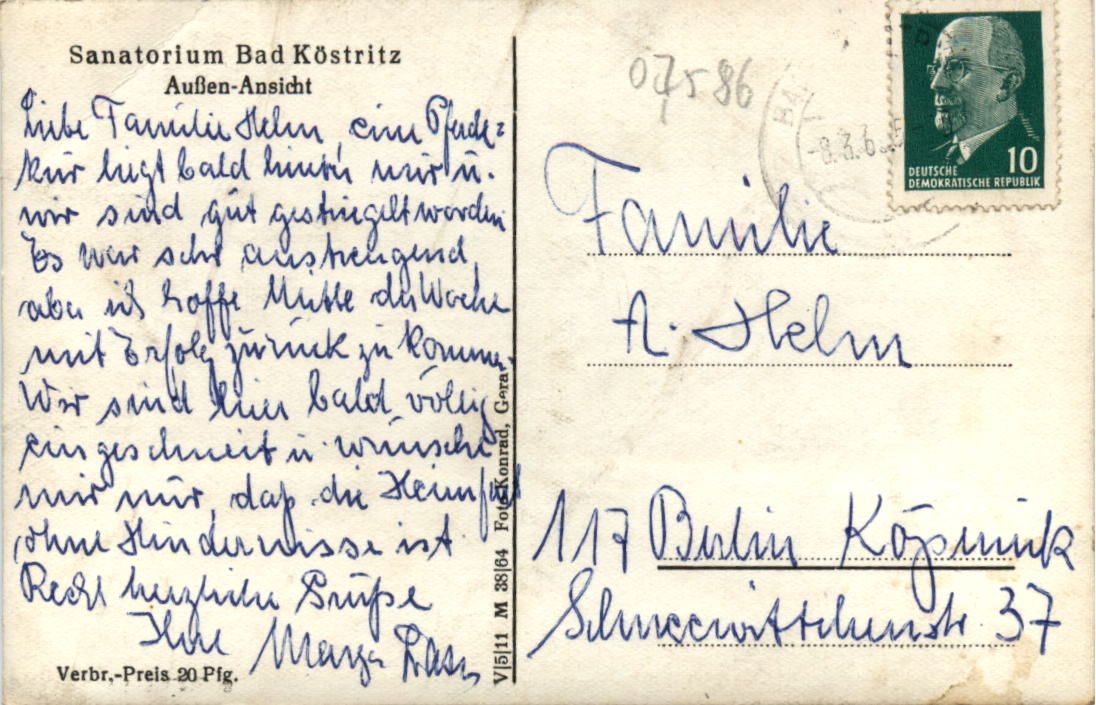 Sanatorium Bad Köstritz
Außen-Ansicht
Liebe Familie Helm, eine Pferde-
kur liegt bald hinter mir u.
wir sind gut gestriegelt worden.
Es war sehr anstrengend,
aber ich hoffe Mitte der Woche
mit Erfolg zurück zu kommen.
Wir sind hier bald völlig
eingeschneit u. wünsche
mir nur, daß die Heimfahrt
ohne Hindernisse ist.
Recht herzliche Grüße
Ihre Marga
Verbr.-Preis 20 Pfg.
V|5|11 M 38|64 Foto-Konrad, Gera
07586
-8.3.6
10
DEUTSCHE
DEMOKRATISCHE REPUBLIK
Familie
A. Helm
117 Berlin Köpenick
Schneewittchenstr. 37